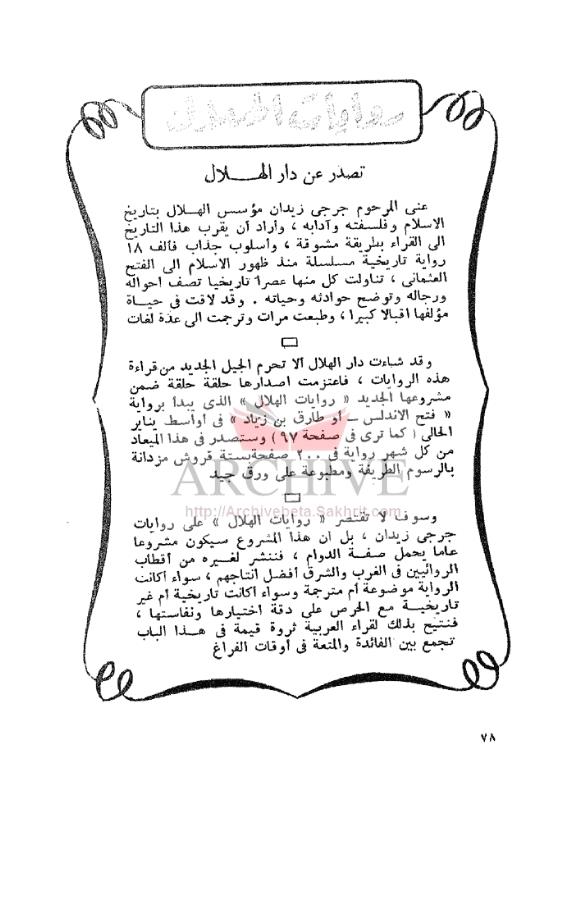 روايات الهلال
تصدر عن دار الهـــــلال
عنى المرحوم جرجى زيدان مؤسس الهلال بتاريخ
الاسلام وفلسفته وآدابه ، وأراد أن يقرب هذا التاريخ
الى القراء بطريقة مشوقة ، وأسلوب جذاب فألف ١٨
رواية تاريخية مسلسلة منذ ظهور الاسلام الى الفتح
العثمانى ، تناولت كل منها عصرا تاريخيا تصف أحواله
ورجاله وتوضح حوادثه وحياته . وقد لاقت فى حيــاة
مؤلفها اقبالا كبيرا ، وطبعت مرات وترجمت الى عدة لغات
وقد شاءت دار الهلال ألا تحرم الجيل الجديد من قراءة
هذه الروايات ، فاعتزمت اصدارها حلقة حلقة ضمن
مشروعها الجديد « روايات الهلال » الذى يبدأ برواية
« فتح الاندلس ــ أو طارق بن زياد » فى أواسط يناير
الحالى ( كما ترى فى صفحة ٩٧ ) وستصدر فى هذا الميعاد
من كل شهر رواية فى ٢٠٠ صفحة بستة قروش مزدانة
بالرسوم الطريفة ومطبوعة على ورق جيد
ARCHIVE
http://Archivebeta.Sakhrit.com
وسوف لا تقتصر « روايات الهلال » على روايات
جرجى زيدان ، بل ان هذا المشروع سيكون مشروعا
عاما يحمل صفـة الدوام ، فننشر لغـيره من أقطاب
الروائيين فى الغرب والشرق أفضل انتاجهم ، سواء أكانت
الرواية موضوعة أم مترجمة وسواء أكانت تاريخية أم غير
تاريخيـة مـع الحرص على دقة اختيارها ونفاستها ،
فنتيح بذلك لقراء العربية ثروة قيمة فى هـذا الباب
تجمع بين الفائدة والمتعة فى أوقات الفراغ
٧٨